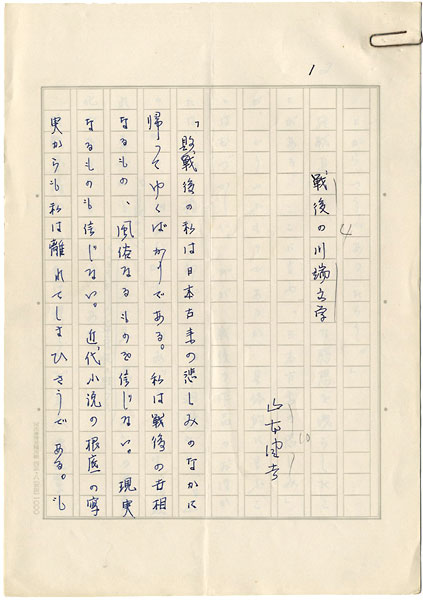 1
4
戦後の川端文学
山本健吉
10
「敗戦後の私は日本古来の悲しみのなかに
帰つてゆくばかりである。私は戦後の世相
なるもの、風俗なるものを信じない。現実
なるものも信じない。近代小説の根底の写
実からも私は離れてしまひさうである。も